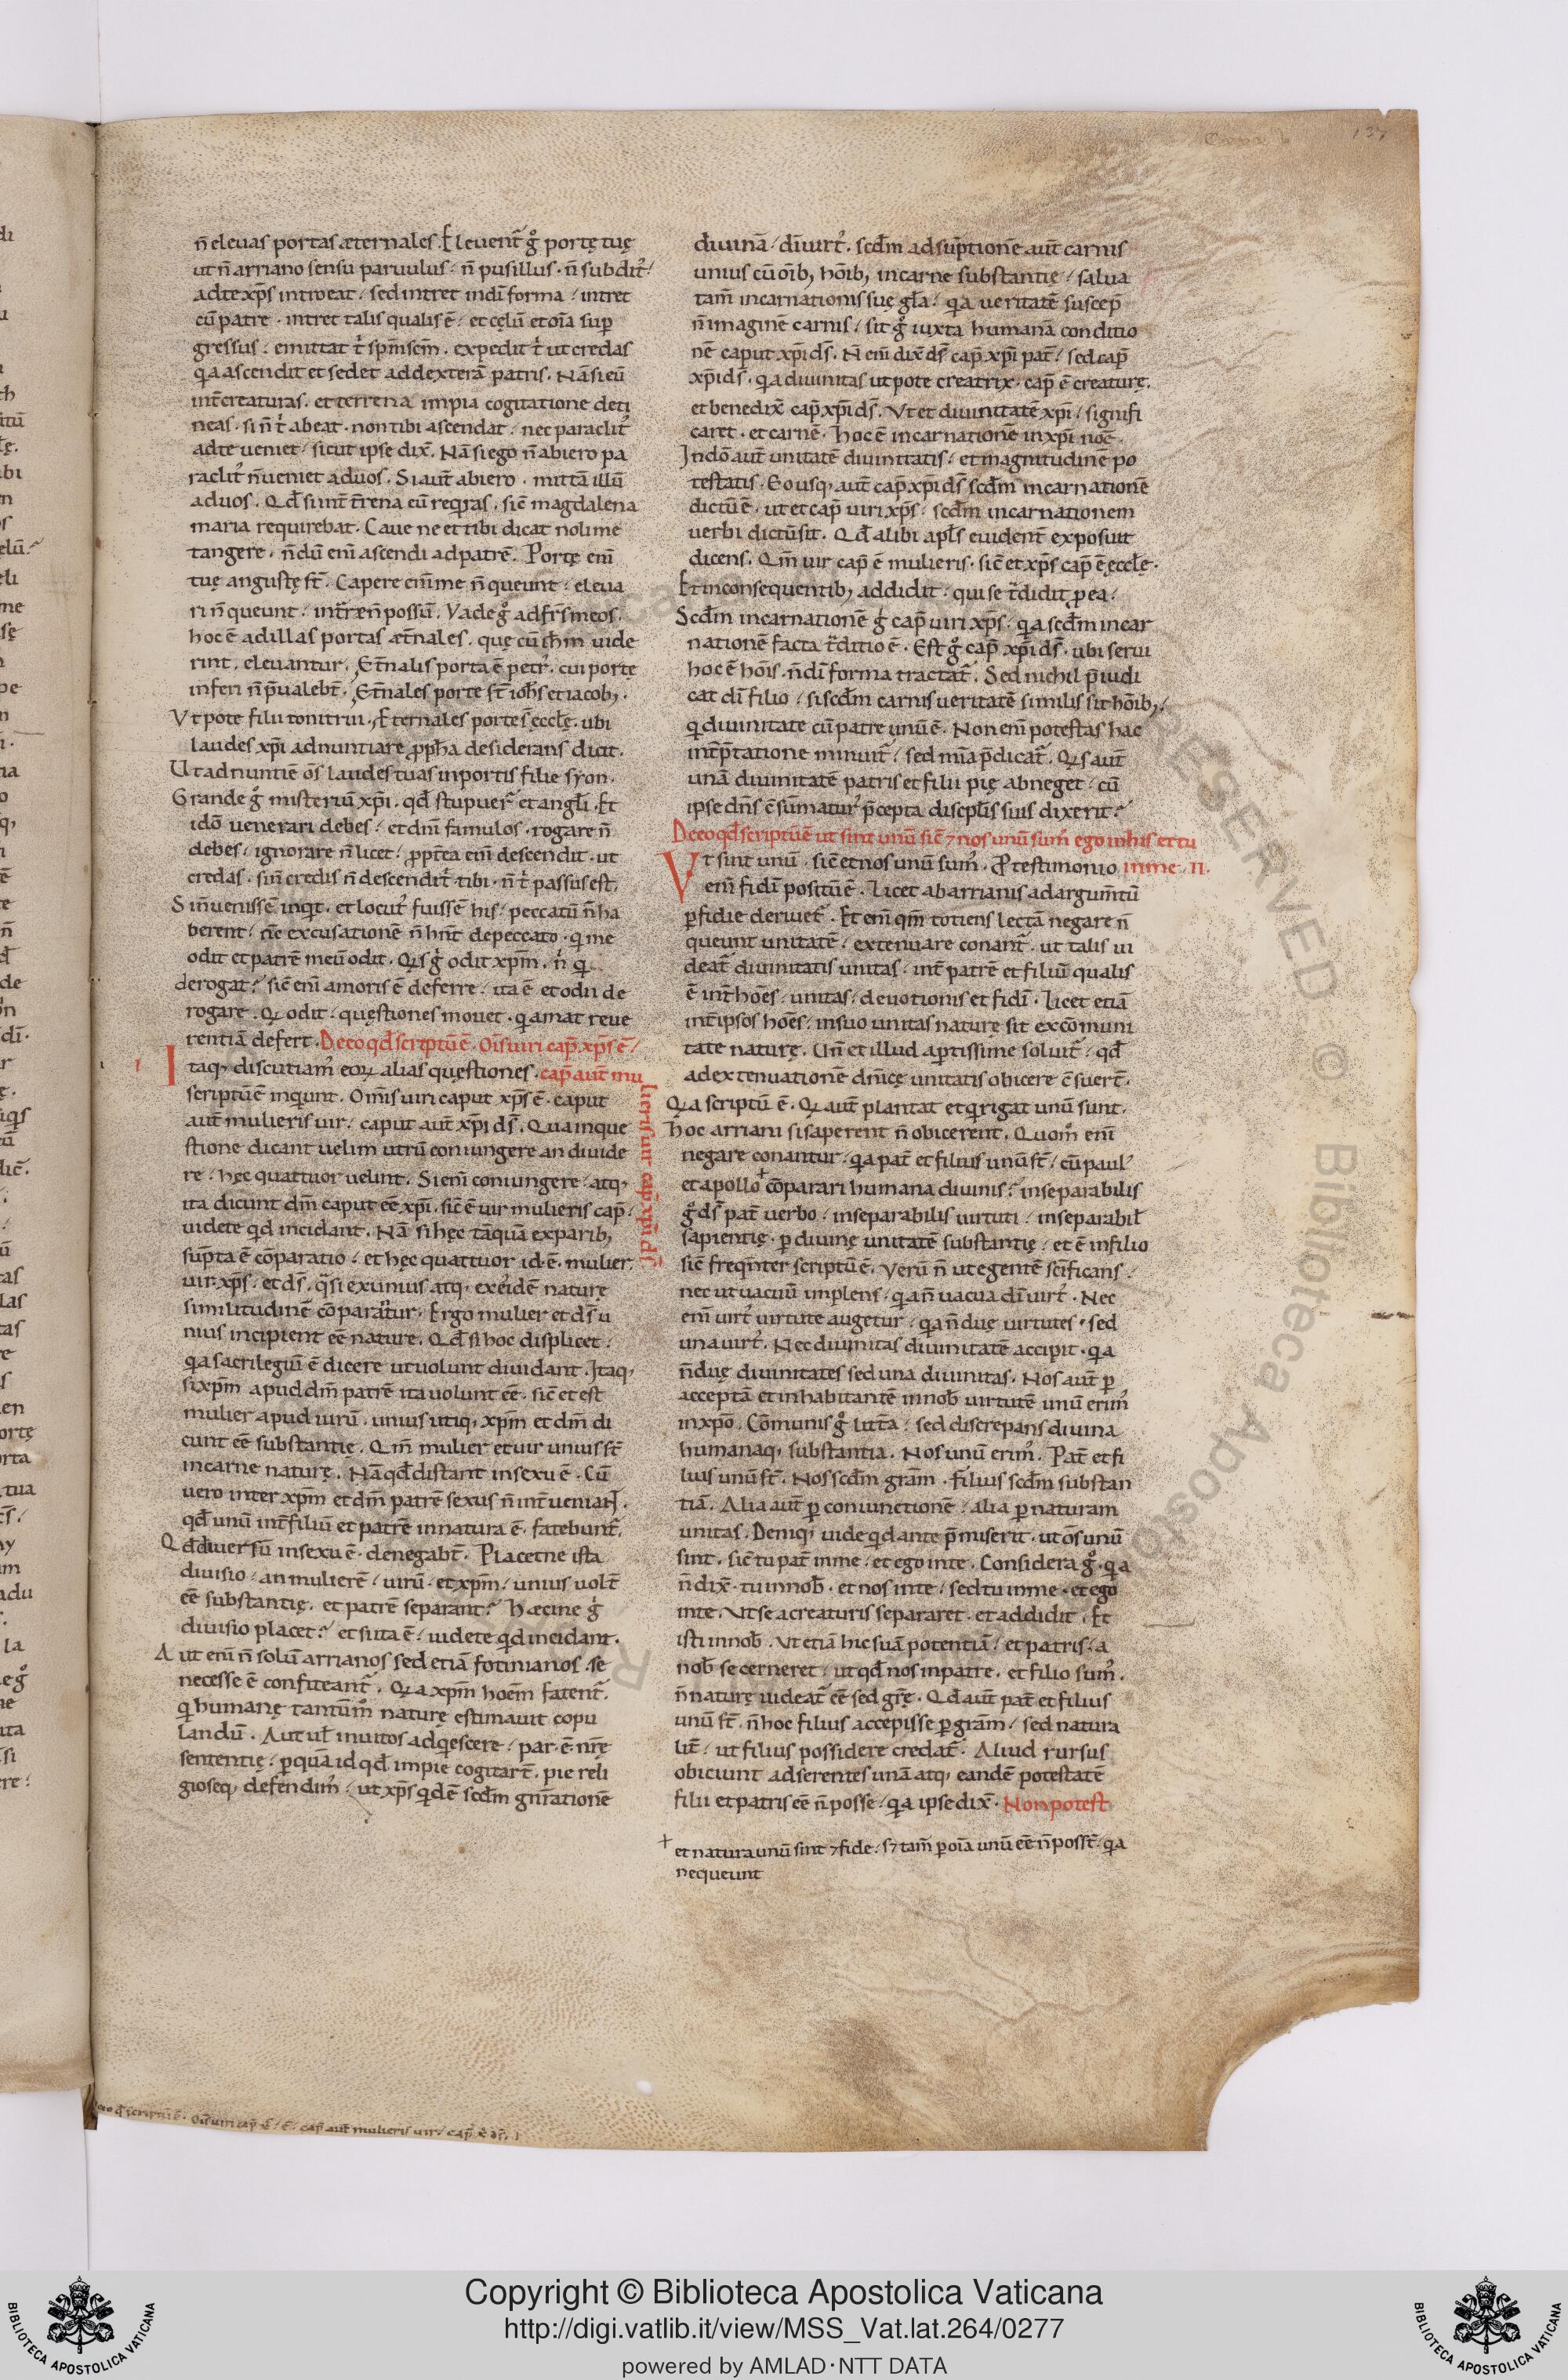 n̄ eleuas portas æternales. Eleuent̄ gͦ portę tuę
ut n̄ arriano sensu paruulus / n̄ pusillus · n̄ subdit᷒ /
ad te xp̄s introeat / sed intret in dī forma / intret
cū patre · intret talis qualis ē / et cęlū et oīa sup̄
gressus / emittat t̄ sp̄m sc̄m. expedit t̄ ut credas
qa ascendit et sedet ad dexterā patris. Nā si eū
int̄ creaturas. et terrena impia cogitatione deti
neas · si n̄ t̄ abeat · non tibi ascendat / nec paraclit᷒
ad te ueniet / sicut ipse dix̄. Nā si ego n̄ abiero pa
raclit᷒ n̄ ueniet ad uos. Si aut̄ abiero · mittā illū
ad uos. Qd̄ si int̄ t̄rena eū reqͥras · sic̄ magdalena
maria requirebat. Caue ne et tibi dicat noli me
tangere · n̄dū enī ascendi ad patrē. Portę enī
tuę angustę st̄. Capere enī me n̄ queunt / eleua
ri n̄ queunt / int̄ræ n̄ possū. Vade gͦ ad fr̄s meos.
hoc ē ad illas portas æt̄nales. quę cū ih̄m uide
rint. eleuantur. Ęt̄nalis porta ē petr᷒. cui portę
inferi n̄ p̄ualebt̄. Ęt̄nales porte st̄ ioh̄s et iacob;.
Vt pote filii tonitrui. Ęternales portę s̄ ęccłę. ubi
laudes xp̄i adnuntiare pph̄a desiderans dicit.
Ut adnuntiē ōs laudes tuas in portis filie syon.
Grande gͦ misteriū xp̄i. qd̄ stupuer̄ et angłi. Et
idō uenerari debes / et dnī famulos · rogare n̄
debes / ignorare n̄ licet / ppt̄ea enī descendit · ut
credas · si n̄ credis n̄ descendit t̄ tibi · n̄ t̄ passus est.
Si n̄ uenissē inqͥt. et locut᷒ fuissē his / peccatū n̄ ha
berent / nc̄ excusationē n̄ hn̄t de peccato · qͥ me
odit et patrē meū odit. Qͥs gͦ odit xp̄m. n̄ qͥ
derogat? sic̄ enī amoris ē deferre / ita ē et odii de
rogare. Qͥ odit / quęstiones mouet · qͥ amat reue
rentiā defert. De eo qd̄ scriptū ē. Oīs uiri cap̄ xp̄s ē /
Itaq; discutiam᷒ eoꝝ alias quęstiones. cap̄ aut̄ mu
lieris uir cap̄ xp̄i d̄s
scriptū ē inquiunt. Om̄is uiri caput xp̄s ē · caput
aut̄ mulieris uir / caput aut̄ xp̄i d̄s. Qua in que
stione dicant uelim utrū coniungere an diuide
re / hęc quattuor uelint. Si enī coniungere / atq;
ita dicunt dm̄ caput ēē xp̄i. sic̄ ē uir mulieris cap̄ /
uidete qd̄ incidant. Nā si hęc tāquā ex parib;
sūpta ē cōparatio / et hęc quattuor id · ē · mulier
uir · xp̄s / et d̄s. qͣsi ex unius atq; eiusdē naturę
similitudinē cōparātur. Ergo mulier et d̄s u
nius incipient ēē nature. Qd̄ si hoc displicet /
qa sacrilegiū ē dicere ut uolunt diuidant. Itaq;
si xp̄m apud dm̄ patrē ita uolunt ēē. sic̄ et est
mulier apud uirū. unius utiq; xp̄m et dm̄ di
cunt ēē substantię. Qm̄ mulier et uir unius st̄
in carne naturę. Nā qd̄ distant in sexu ē. Cū
uero inter xp̄m et dm̄ patrē sexus n̄ int̄ueniat.
qd̄ unū int̄ filiū et patrē in natura ē. fatebunt̄.
Qd̄ diuersū in sexu ē · denegabt̄. Placetne ista
diuisio / an mulierē / uirū · et xp̄m / unius uolt̄
ēē substantię. et patrē separant? Hæcine gͦ
diuisio placet? et si ita ē / uidete qͥd incidant.
Aut enī n̄ solū arrianos sed etiā fotinianos · se
necesse ē confiteant̄. Qͥa xp̄m hoēm fatent̄.
qͥ humanę tantūm naturę estimauit copu
landū. Aut uł inuitos adqͥescere / par · ē · nr̄ę
sententię / p quā id qd̄ impie cogitar̄t. pie reli
gioseq; defendim᷒ / ut xp̄s qͥdē scdm̄ gn̄rationē
diuinā / dī uirt᷒. scdm̄ adsūptionē aut̄ carnis
unius cū oīb; hoīb; in carne substantię / salua
tam̄ incarnationis suę gła / qa ueritatē suscep̄
n̄ imaginē carnis / sit gͦ iuxta humanā conditio
nē caput xp̄i d̄s. N̄ enī dix̄ d̄s cap̄ xp̄i pat̄ / sed cap̄
xp̄i d̄s. qa diuinitas ut pote creatrix · cap̄ ē creaturę.
et bene dix̄ cap̄ xp̄i d̄s. Vt et diuinitatē xp̄i / signifi
caret · et carnē. hoc ē incarnationē in xp̄i noē.
In dō aut̄ unitatē diuinitatis / et magnitudinē po
testatis. Eo usq; aut̄ cap̄ xp̄i d̄s scdm̄ incarnationē
dictū ē. ut et cap̄ uiri xp̄s / scdm̄ incarnationem
uerbi dictū sit. Qd̄ alibi apłs euident̄ exposuit
dicens. Qm̄ uir cap̄ ē mulieris · sic̄ et xp̄s cap̄ ē ęccłę.
Et in consequentib; addidit / qui se t̄didit p ea /
Scdm̄ incarnationē gͦ cap̄ uiri xp̄s / qa scdm̄ incar
nationē facta t̄ditio ē. Est gͦ cap̄ xp̄i d̄s. ubi serui
hoc ē hoīs. n̄ dī forma tractat̄. Sed nichil p̄iudi
cat dī filio / si scdm̄ carnis ueritatē similis sit hoīb; /
qͥ diuinitate cū patre unū ē. Non enī potestas hac
int̄p̄tatione minuit̄ / sed mīa p̄dicat̄. Qͥs aut̄
unā diuinitatē patris et filii pię abneget / cū
ipse dn̄s c̄sūmatur᷒ p̄cepta discipłis suis dixerit?
De eo qd̄ scriptū ē ut sint unū sic̄ ⁊ nos unū sum᷒ ego in his et tu
Vt sint unū · sic̄ et nos unū sum᷒. Pro testimonio in me · II ·
enī fidī positū ē. Licet ab arrianis ad argum̄tū
pfidie deriuet̄. Et enī qm̄ totiens lectā negare n̄
queunt unitatē / extenuare conant̄ · ut talis ui
deat̄ diuinitatis unitas / int̄ patrē et filiū qualis
ē int̄ hoēs / unitas / deuotionis et fidī. Licet etiā
int̄ ipsos hoēs / in suo unitas naturę sit ex cōmuni
tate nature. Un̄ et illud aptissime soluit̄ / qd̄
ad extenuationē dm̄cę unitatis obicere c̄suer̄t.
Qͥa scriptū ē. Qͥ aut̄ plantat et qͥ rigat unū sunt.
hoc arriani si saperent n̄ obicerent. Quomͦ enī
negare conantur / qa pat̄ et filius unū st̄ / cū paul᷒
et apollo + cōparari humana diuinis? inseparabilis
gͦ d̄s pat̄ uerbo / inseparabilis uirtuti / inseparabił
sapientię · p diuinę unitatē substantię / et ē in filio
sic̄ freqn̄ter scriptū ē. Verū n̄ ut egentē scīficans /
nec ut uacuū implens / qa n̄ uacua dī uirt᷒. Nec
enī uirt᷒ uirtute augetur / qa n̄ duę uirtutes / sed
una uirt᷒. Nec diuinitas diuinitatē accipit · qa
n̄ duę diuinitates sed una diuinitas. Nos aut̄ p
acceptā et inhabitantē in nob̄ uirtutē unū erim᷒
in xpō. Cōmunis gͦ litt̄a / sed discrepans diuina
humanaq; substantia. Nos unū erim᷒. Pat̄ et fi
lius unū st̄. Nos scdm̄ grām. Filius scdm̄ substan
tiā. Alia aut̄ p coniunctionē / alia p naturam
unitas. Deniq; uide qͥd ante p̄miserit · ut ōs unū
sint. sic̄ tu pat̄ in me / et ego in te. Considera gͦ · qa
n̄ dix̄ · tu in nob̄ · et nos in te / sed tu in me · et ego
in te. Vt se a creaturis separaret · et addidit. Et
isti in nob̄. Vt etiā hic suā potentiā / et patris / a
nob̄ secerneret / ut qd̄ nos in patre. et filio sum᷒.
n̄ naturę uideat̄ ēē sed gr̄ę. Qd̄ aut̄ pat̄ et filius
unū st̄. n̄ hoc filius accepisse p grām / sed natura
lit̄ / ut filius possidere credat̄. Aliud rursus
obiciunt adserentes unā atq; eandē potestatē
filii et patris ēē n̄ posse / qa ipse dix̄. Non potest
+ et natura unū sint ⁊ fide / s; tam̄ p oīa unū ēē n̄ posst̄ / qa
nequeunt
Copyright © Biblioteca Apostolica Vaticana
http://digi.vatlib.it/view/MSS_Vat.lat.264/0277
powered by AMLAD·NTT DATA
BIBLIOTECA APOSTOLICA VATICANA
BIBLIOTECA APOSTOLICA VATICANA